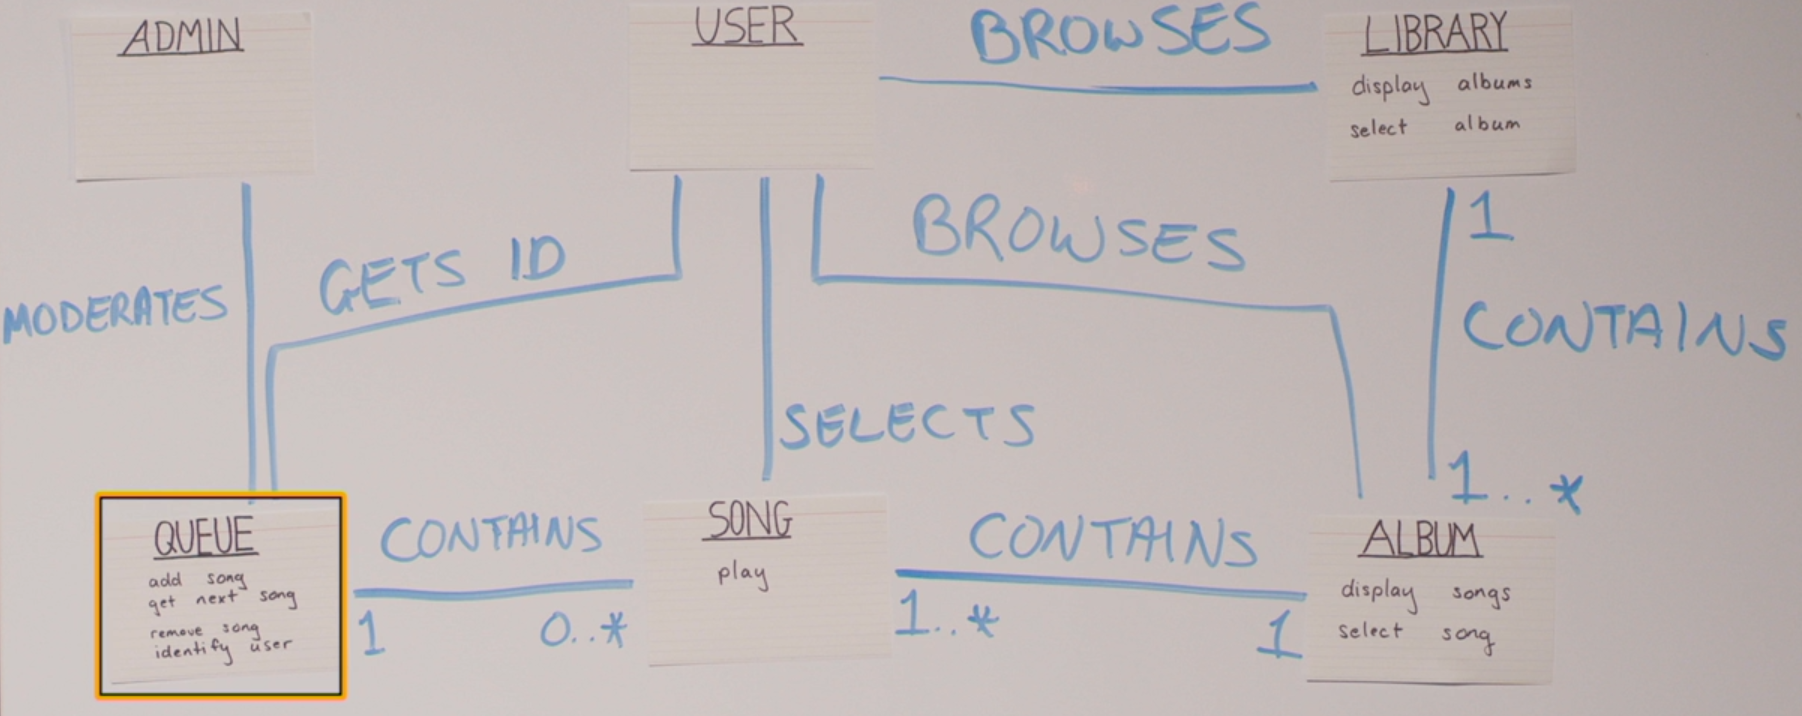 ADMIN
USER
BROWSES
LIBRARY
display albums
select album
MODERATES
GETS ID
BROWSES
1
CONTAINS
1..*
SELECTS
QUEUE
add song
get next song
remove song
identify user
CONTAINS
1
0..*
SONG
play
CONTAINS
1..*
1
ALBUM
display songs
select song